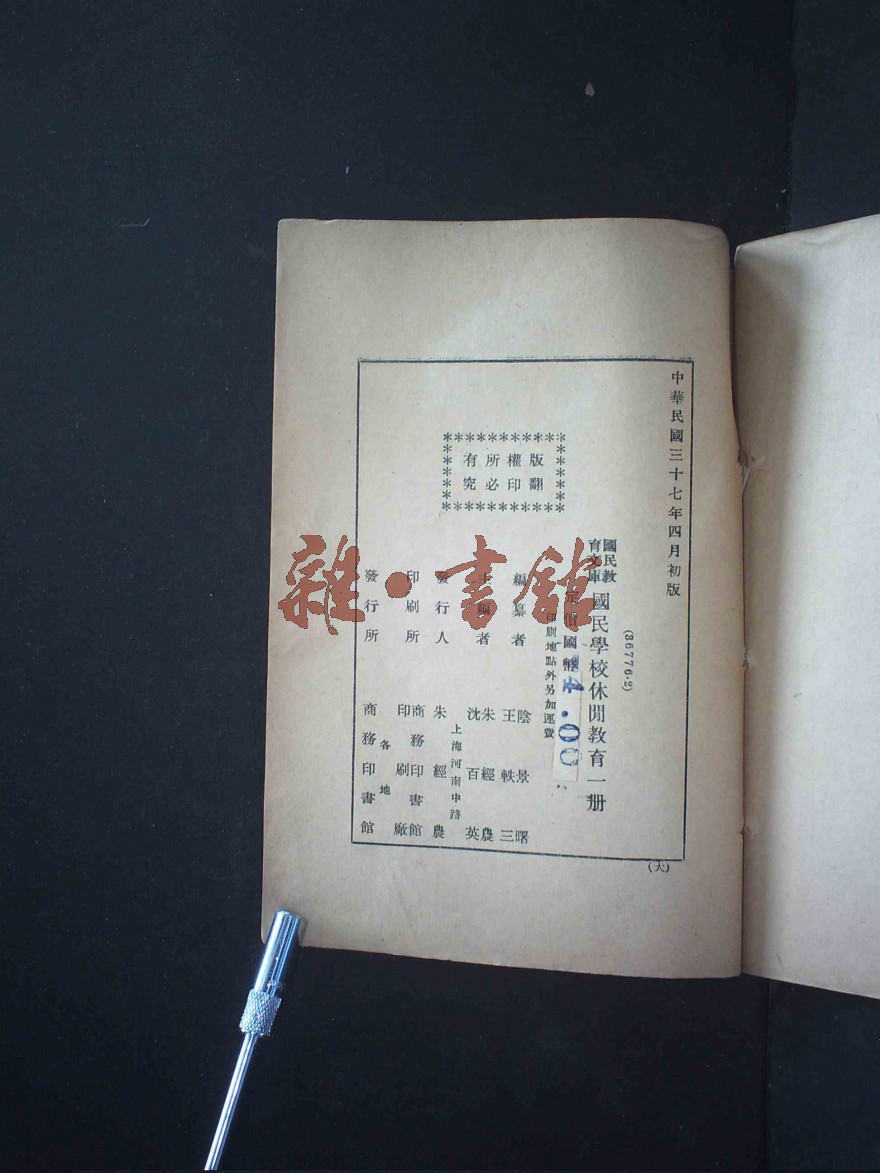 中華民國三十七年四月初版
(36776·2)
國民教育文庫
國民學校休閒教育一册
定價國幣4.00
印刷地點外另加運費
編纂者 陰景曙 王軼三
主編者 朱經農 沈百英
上海河南中路
發行人 朱經農
印刷所 商務印書館印刷廠
各地
發行所 商務印書館
版權所有
翻印必究
(大)
雜·書館